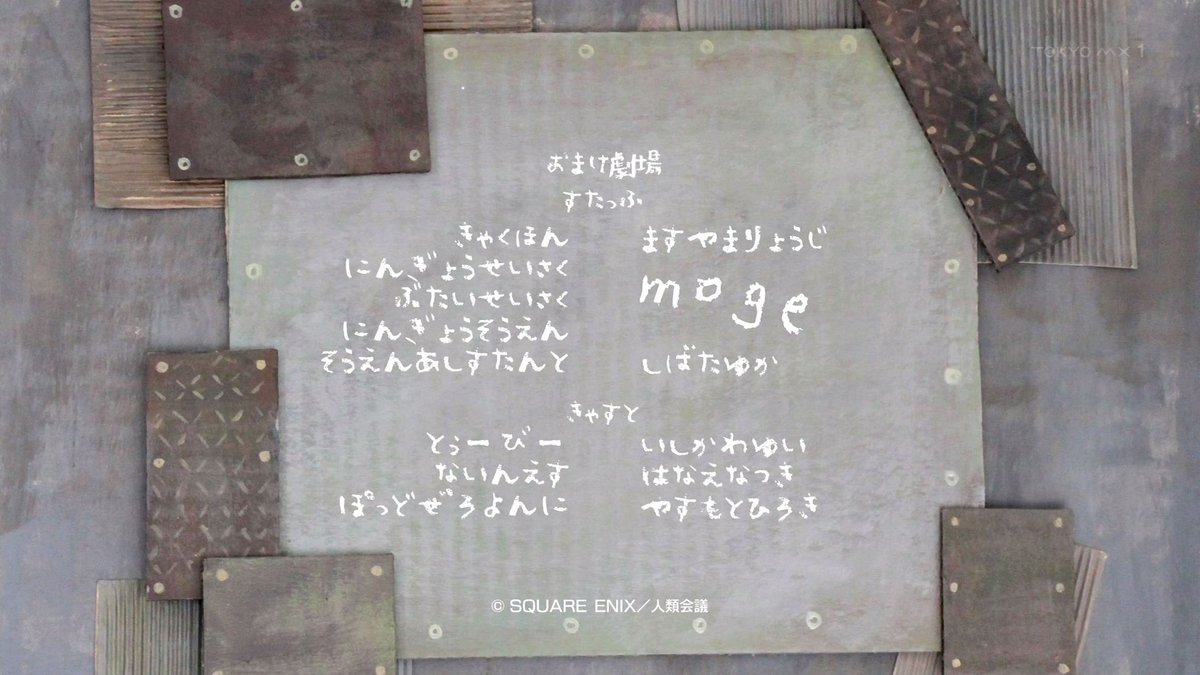 TOKYO MX 1
おまけ劇場
すたっふ
きゃくほん ますやまりょうじ
にんぎょうせいさく
ぶたいせいさく moge
にんぎょうそうえん
そうえんあしすたんと しばたゆか
きゃすと
とぅーびー いしかわゆい
ないんえす はなえなつき
ぽっどぜろよんに やすもとひろき
© SQUARE ENIX/人類会議